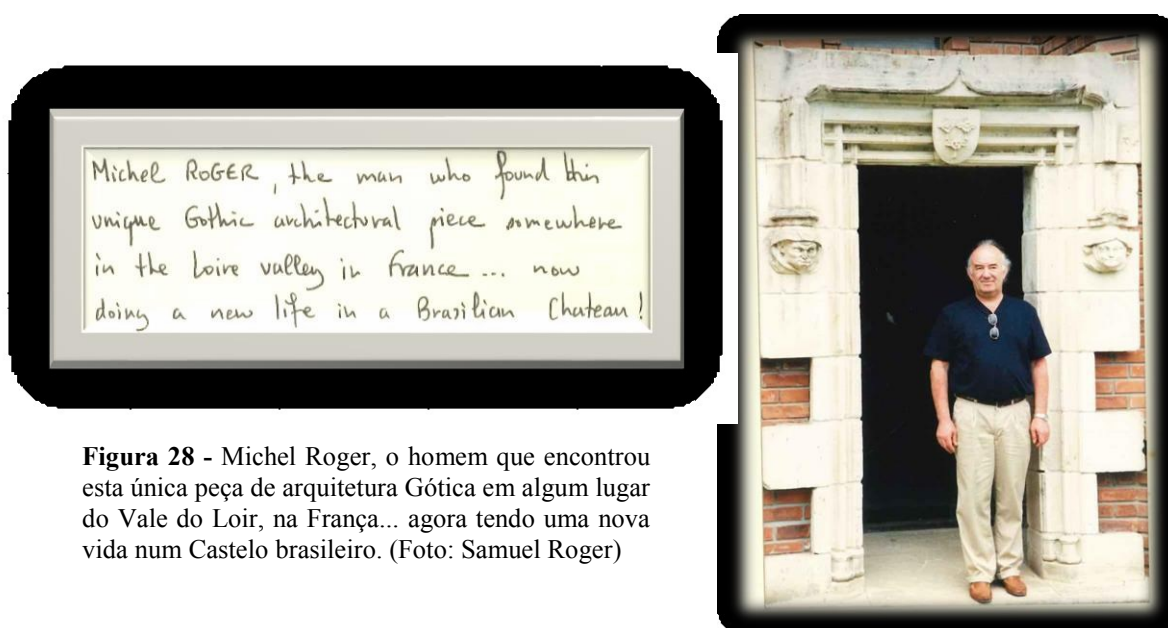 Michel ROGER, the man who found this
unique Gothic architectural piece somewhere
in the Loire valley in France ... now
doing a new life in a Brazilian Chateau!
Figura 28 - Michel Roger, o homem que encontrou
esta única peça de arquitetura Gótica em algum lugar
do Vale do Loir, na França... agora tendo uma nova
vida num Castelo brasileiro. (Foto: Samuel Roger)